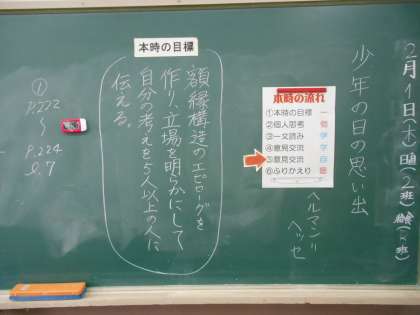 少年の日の思い出
ヘルマン=
ヘッセ
本時の流れ
①本時の目標
②個人思考
③一文読み
④意見交流
⑤意見交流
⑥ふりかえり
本時の目標
額縁構造のエピローグを
作り、立場を明らかにして
自分の考えを5人以上の人に
伝える。
①
P.222
P.224
l.7